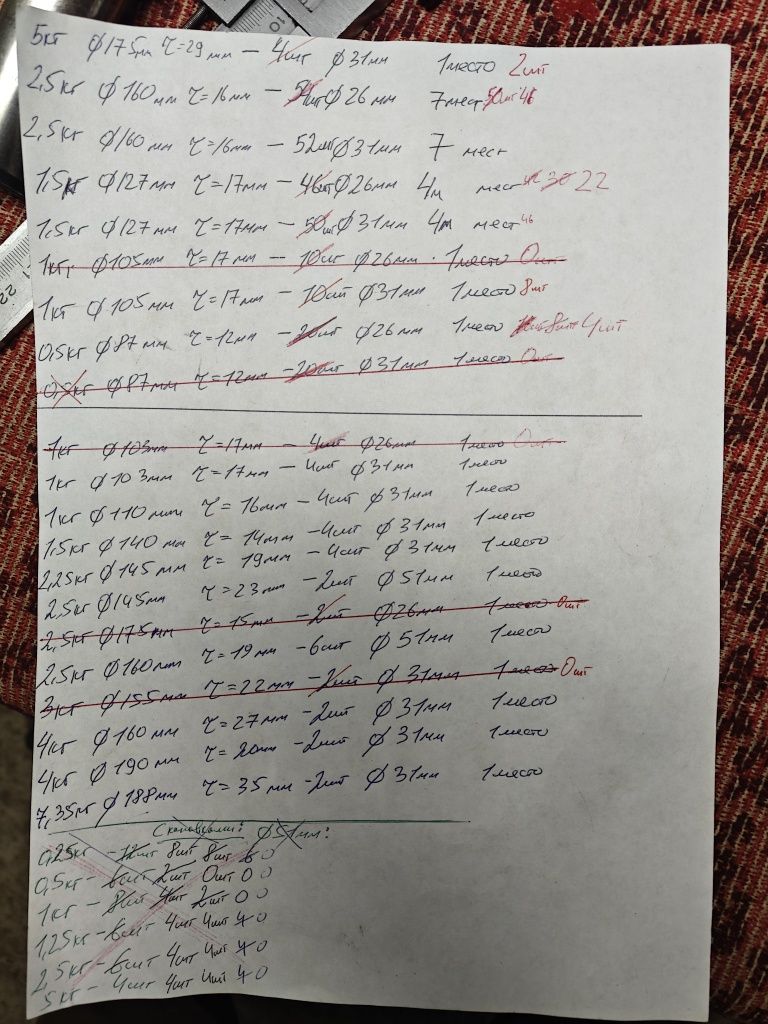 5кг ϕ175мм τ=29мм – 4шт ϕ31мм 1место 2шт
2,5кг ϕ160мм τ=16мм – шт ϕ26мм 7мест 50шт 46
2,5кг ϕ160мм τ=16мм – 52шт ϕ31мм 7 мест
1,5кг ϕ127мм τ=17мм – 46шт ϕ26мм 4м мест 30 22
1,5кг ϕ127мм τ=17мм – 50шт ϕ31мм 4м мест 46
1кг, ϕ105мм τ=17мм – 10шт ϕ26мм. 1место 0шт
1кг ϕ105мм τ=17мм – 10шт ϕ31мм 1место 8шт
0,5кг ϕ87мм τ=12мм – 20шт ϕ26мм 1место 8шт 4шт
0,5кг ϕ87мм τ=12мм – 20шт ϕ31мм 1место 0шт
1кг ϕ103мм τ=17мм – 4шт ϕ26мм 1место 0шт
1кг ϕ103мм τ=17мм – 4шт ϕ31мм 1место
1кг ϕ110мм τ=16мм – 4шт ϕ31мм 1место
1,5кг ϕ140мм τ=14мм – 4шт ϕ31мм 1место
2,25кг ϕ145мм τ=19мм – 4шт ϕ31мм 1место
2,5кг ϕ145мм τ=23мм – 2шт ϕ51мм 1место
2,5кг ϕ175мм τ=15мм – 2шт ϕ26мм 1место 0шт
2,5кг ϕ160мм τ=19мм – 6шт ϕ51мм 1место
3кг ϕ155мм τ=22мм – 2шт ϕ31мм 1место 0шт
4кг ϕ160мм τ=27мм – 2шт ϕ31мм 1место
4кг ϕ190мм τ=20мм – 2шт ϕ31мм 1место
7,35кг ϕ188мм τ=35мм – 2шт ϕ31мм 1место
ϕ51мм:
0,25кг – 12шт 8шт 8шт 6 0
0,5кг – 6шт 2шт 0шт 0 0
1кг – 8шт 4шт 2шт 0 0
1,25кг – 6шт 4шт 4шт 4 0
2,5кг – 6шт 4шт 4шт 4 0
5кг – 4шт 4шт 4шт 4 0